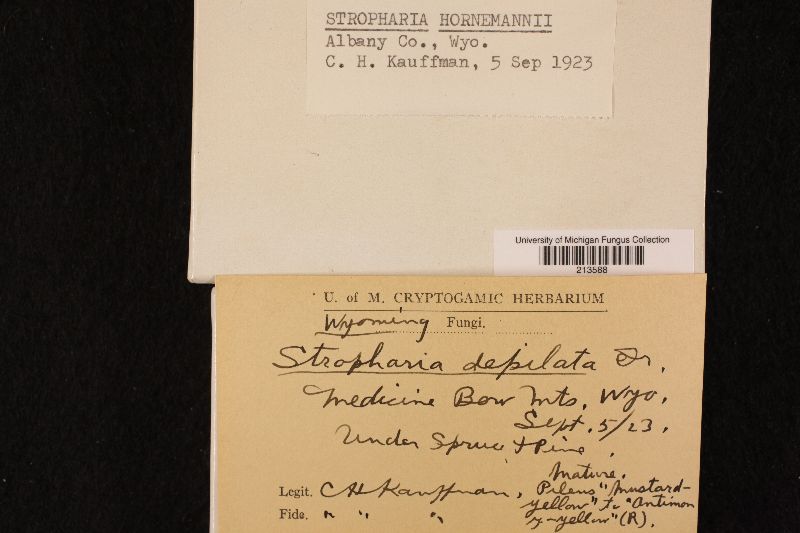 STROPHARIA HORNEMANNII
Albany Co., Wyo.
C. H. Kauffman, 5 Sep 1923
University of Michigan Fungus Collection
213588
U. of M. CRYPTOGAMIC HERBARIUM
Wyoming Fungi.
Stropharia depilata Fr.
Medicine Bow Mts. Wyo.
Sept. 5/23.
Under Spruce + Pine.
Mature.
Legit. CH Kauffman, Pileus "mustard-
yellow" to "Antimon
y-yellow" (R).
Fide. " " "